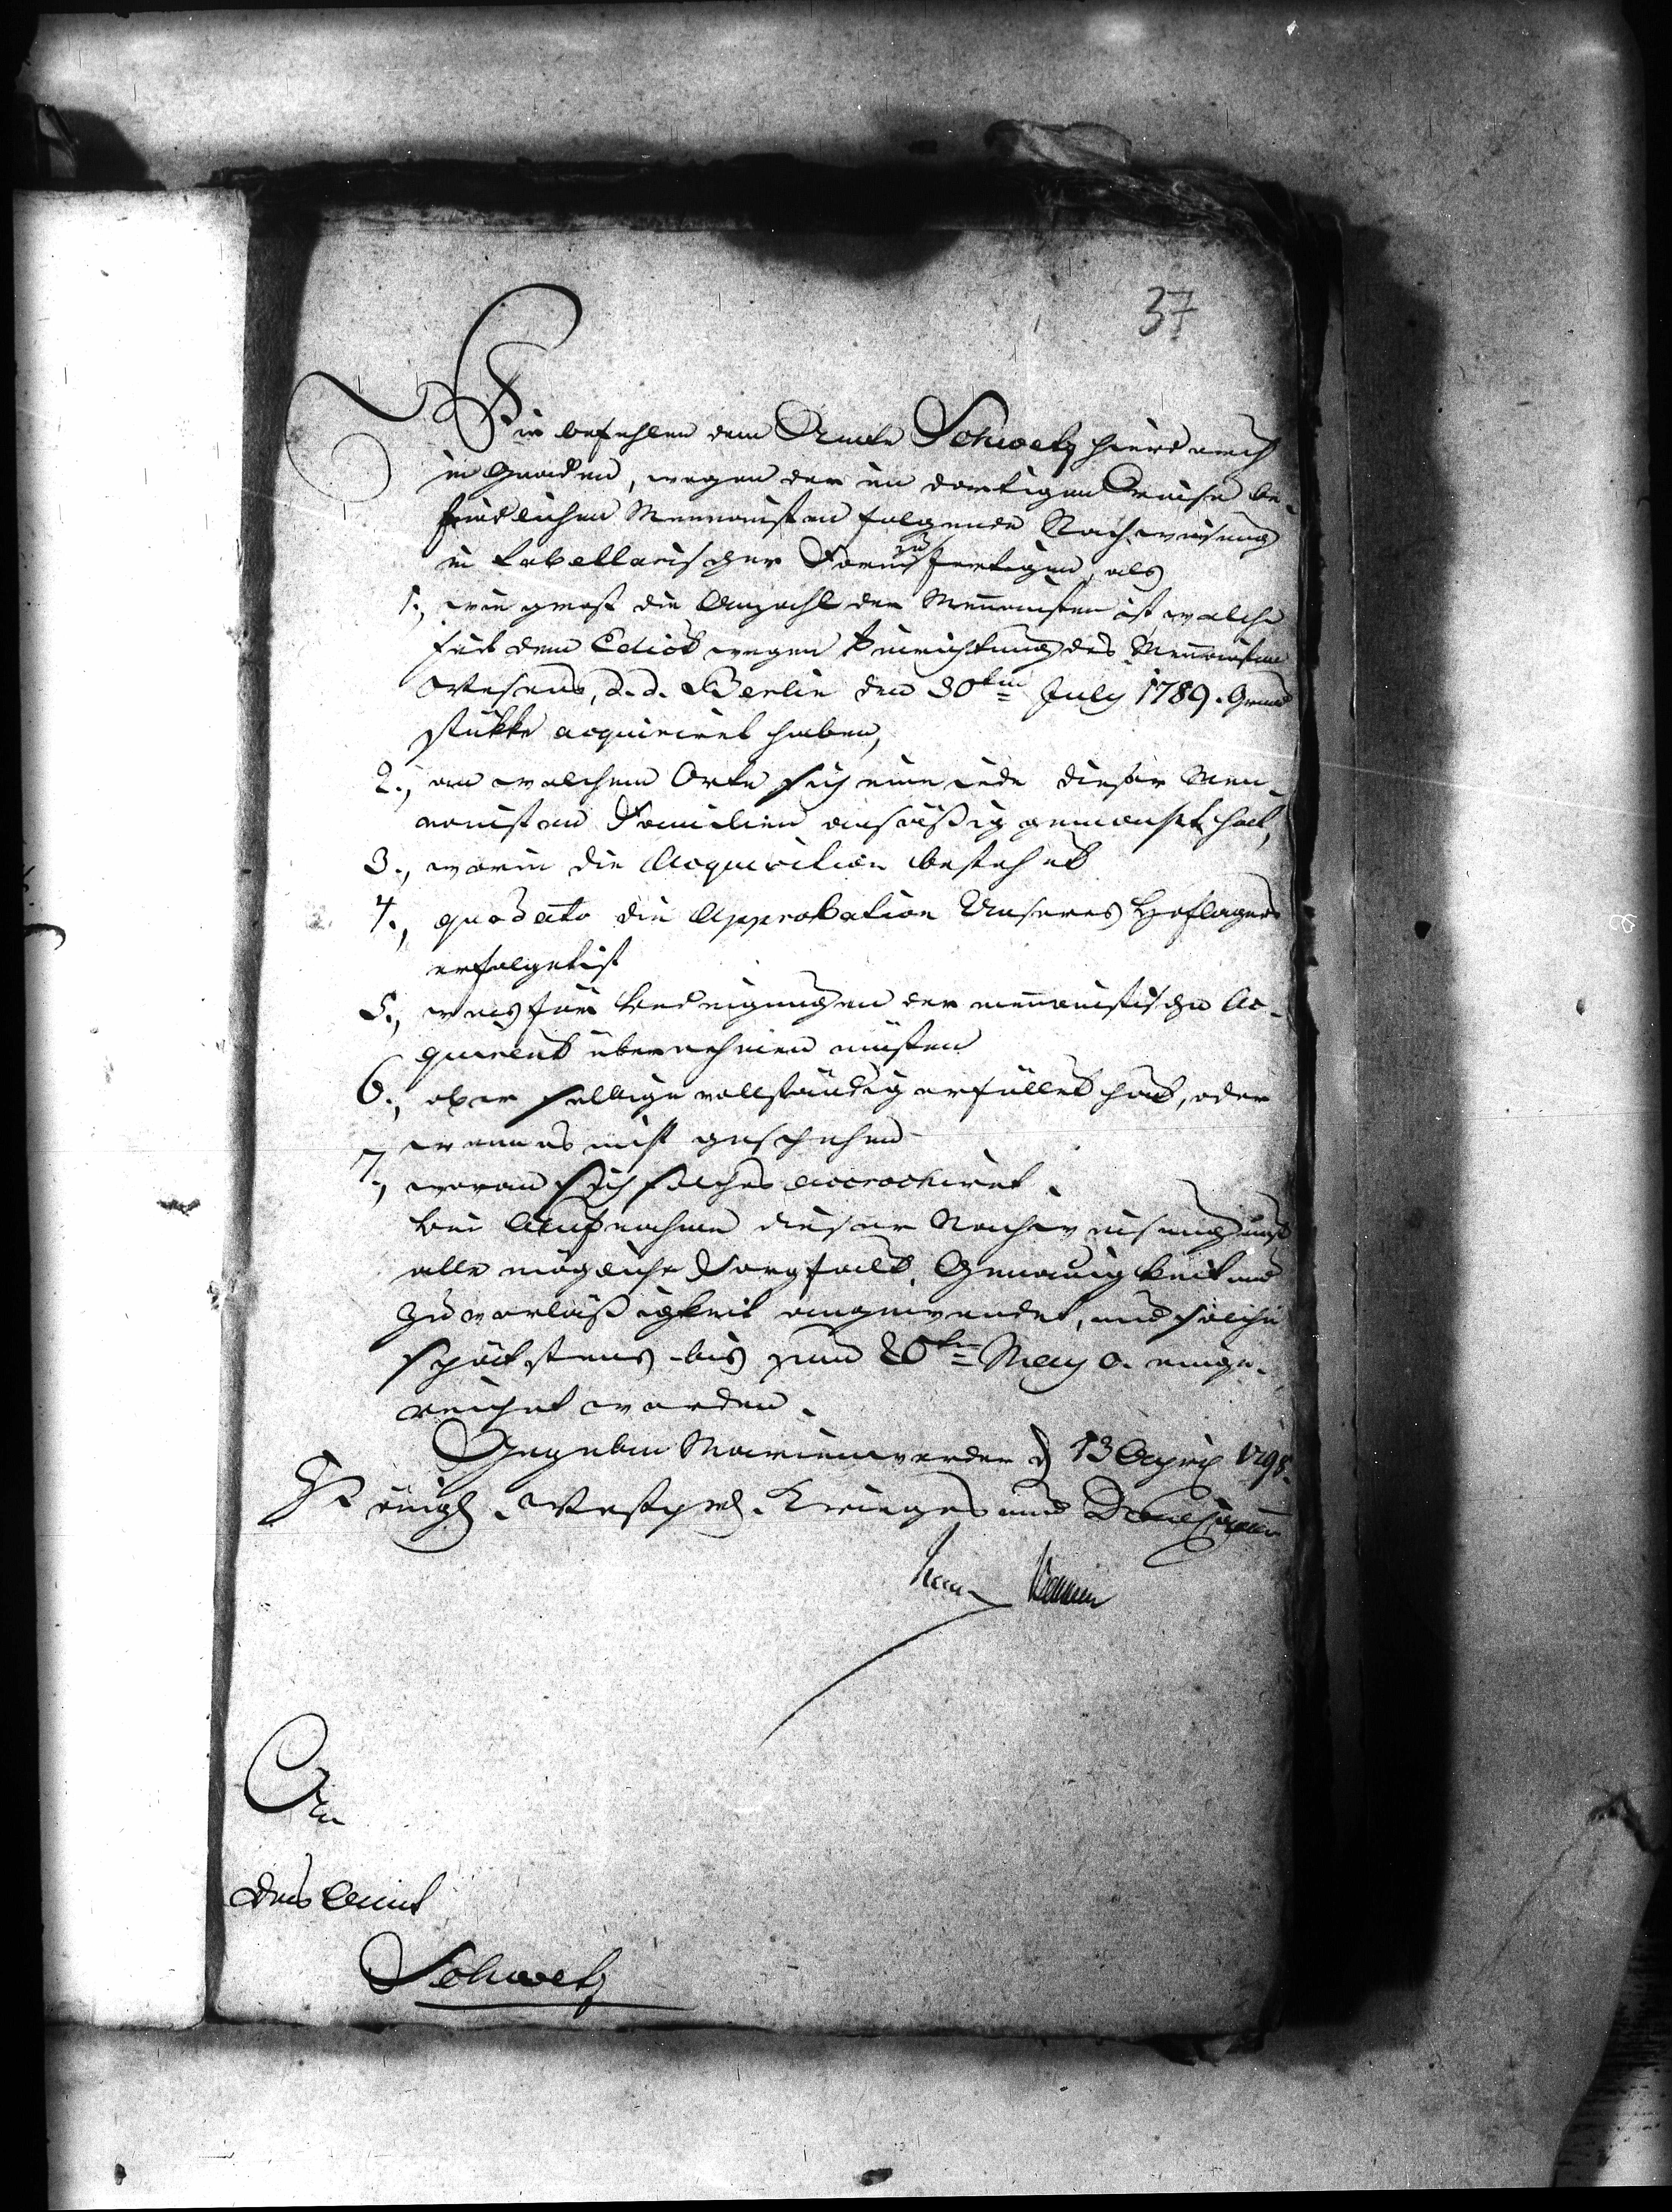 37
Wir befehlen dem Amte Schwetz hierdurch
in Gnaden, wegen der im dortigen Creise be-
findlichen Mennonisten folgende Nachweisung
in tabellarischer Form zu fertigen, als
1., wie groß die Anzahl der Mennonisten ist welche
seit dem Edict wegen Einrichtung des Mennonisten
Wesens, d. d. Berlin den 30ten July 1789. Grund
stükke acquiriret haben,
2., an welchem Orte sich eine jede dieser Men-
nonisten Familien ansäßig gemacht hat,
3., worin die Acquisition bestehet
4., quo dato die Approbation Unseres Hoflagers
erfolget ist
5., was für Bedingungen der mennonistische Ac-
quirent übernehmen müssen
6., ob er selbige vollständig erfüllet hat, oder
wenn es nicht geschehen
7., woran sich solches accrochiret.
Bei Aufnahme dieser Nachweisung muß
alle mögliche Sorgfalt, Genauigkeit und
Zuverläßigkeit angewendet, und solche
spätstens bis zum 20ten May a. einge-
reichet werden.
Gegeben Marienwerder d 13 April 1798.
Königl. Westpr. Krieges und Dom
An
das Amt
Schwetz